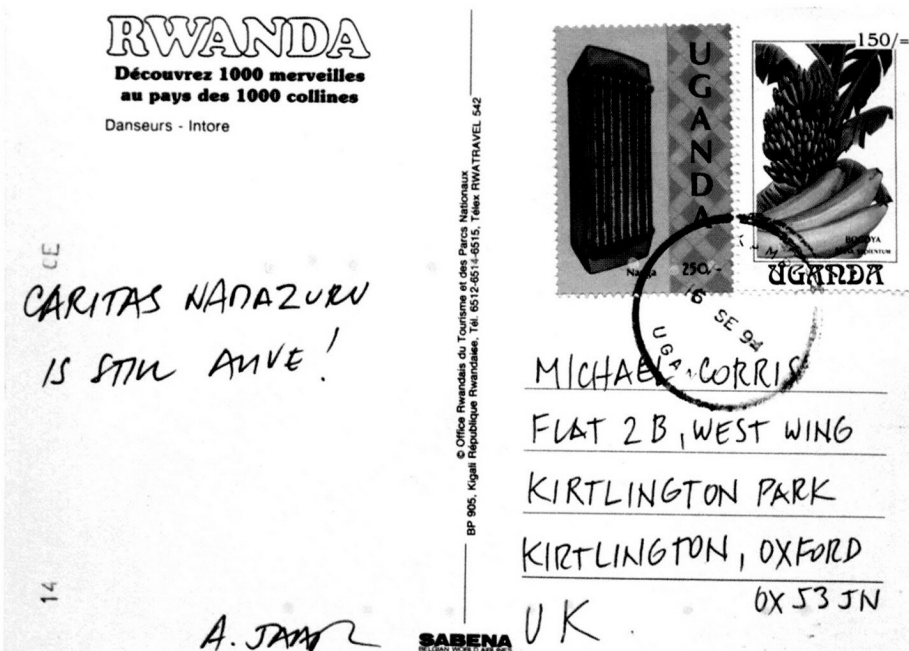 RWANDA
Découvrez 1000 merveilles
au pays des 1000 collines
Danseurs - Intore
CE
CARITAS NAMAZURU
IS STILL ALIVE!
14
A. JAAR
© Office Rwandais du Tourisme et des Parcs Nationaux
BP 905, Kigali République Rwandaise, Tél. 6512-6514-6515, Télex RWATRAVEL 542
SABENA
BELGIAN WORLD AIRLINES
UGANDA
Nanga
250/-
150/=
BOGOYA
UGANDA
16 SE 94
UGAN
MICHAEL CORRIS
FLAT 2B, WEST WING
KIRTLINGTON PARK
KIRTLINGTON, OXFORD
OX5 3JN
UK